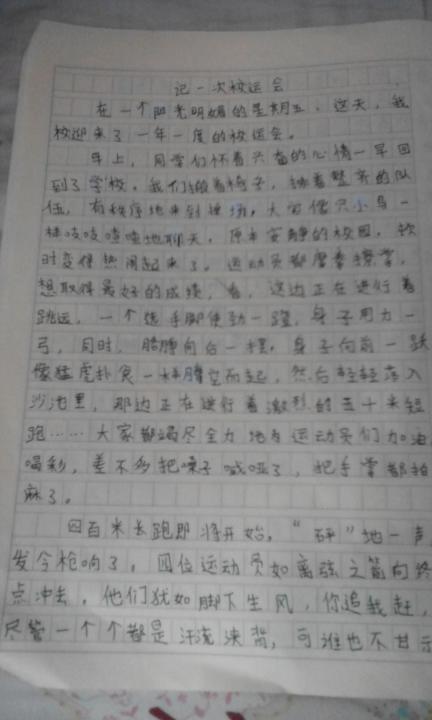 记一次校运会
在一个阳光明媚的星期五，这天，我
校迎来了一年一度的校运会。
早上，同学们怀着兴奋的心情一早回
到了学校。我们搬着椅子，排着整齐的队
伍，有秩序地来到操场，大家像只小鸟一
样吱吱喳喳地聊天，原本安静的校园，顿
时变得热闹起来了。运动员都摩拳擦掌，
想取得最好的成绩，看，这边正在进行着
跳远，一个选手脚使劲一蹬，身子用力一
弓，同时，胳膊向后一摆，身子向前一跃
像猛虎扑食一样腾空而起，然后轻轻落入
沙池里，那边正在进行着激烈的五十米短
跑……大家都竭尽全力地为运动员们加油
喝彩，差不多把嗓子喊哑了，把手掌都拍
麻了。
四百米长跑即将开始，“砰”地一声
发令枪响了，四位运动员如离弦之箭向终
点冲去，他们犹如脚下生风，你追我赶，
尽管一个个都是汗流浃背，可谁也不甘示